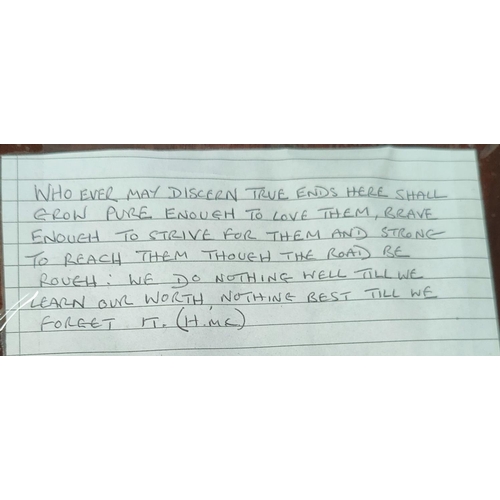 WHO EVER MAY DISCERN TRUE ENDS HERE SHALL
GROW PURE ENOUGH TO LOVE THEM, BRAVE
ENOUGH TO STRIVE FOR THEM AND STRONG
TO REACH THEM THOUGH THE ROAD BE
ROUGH: WE DO NOTHING WELL TILL WE
LEARN OUR WORTH, NOTHING BEST TILL WE
FORGET IT. (H.MC)